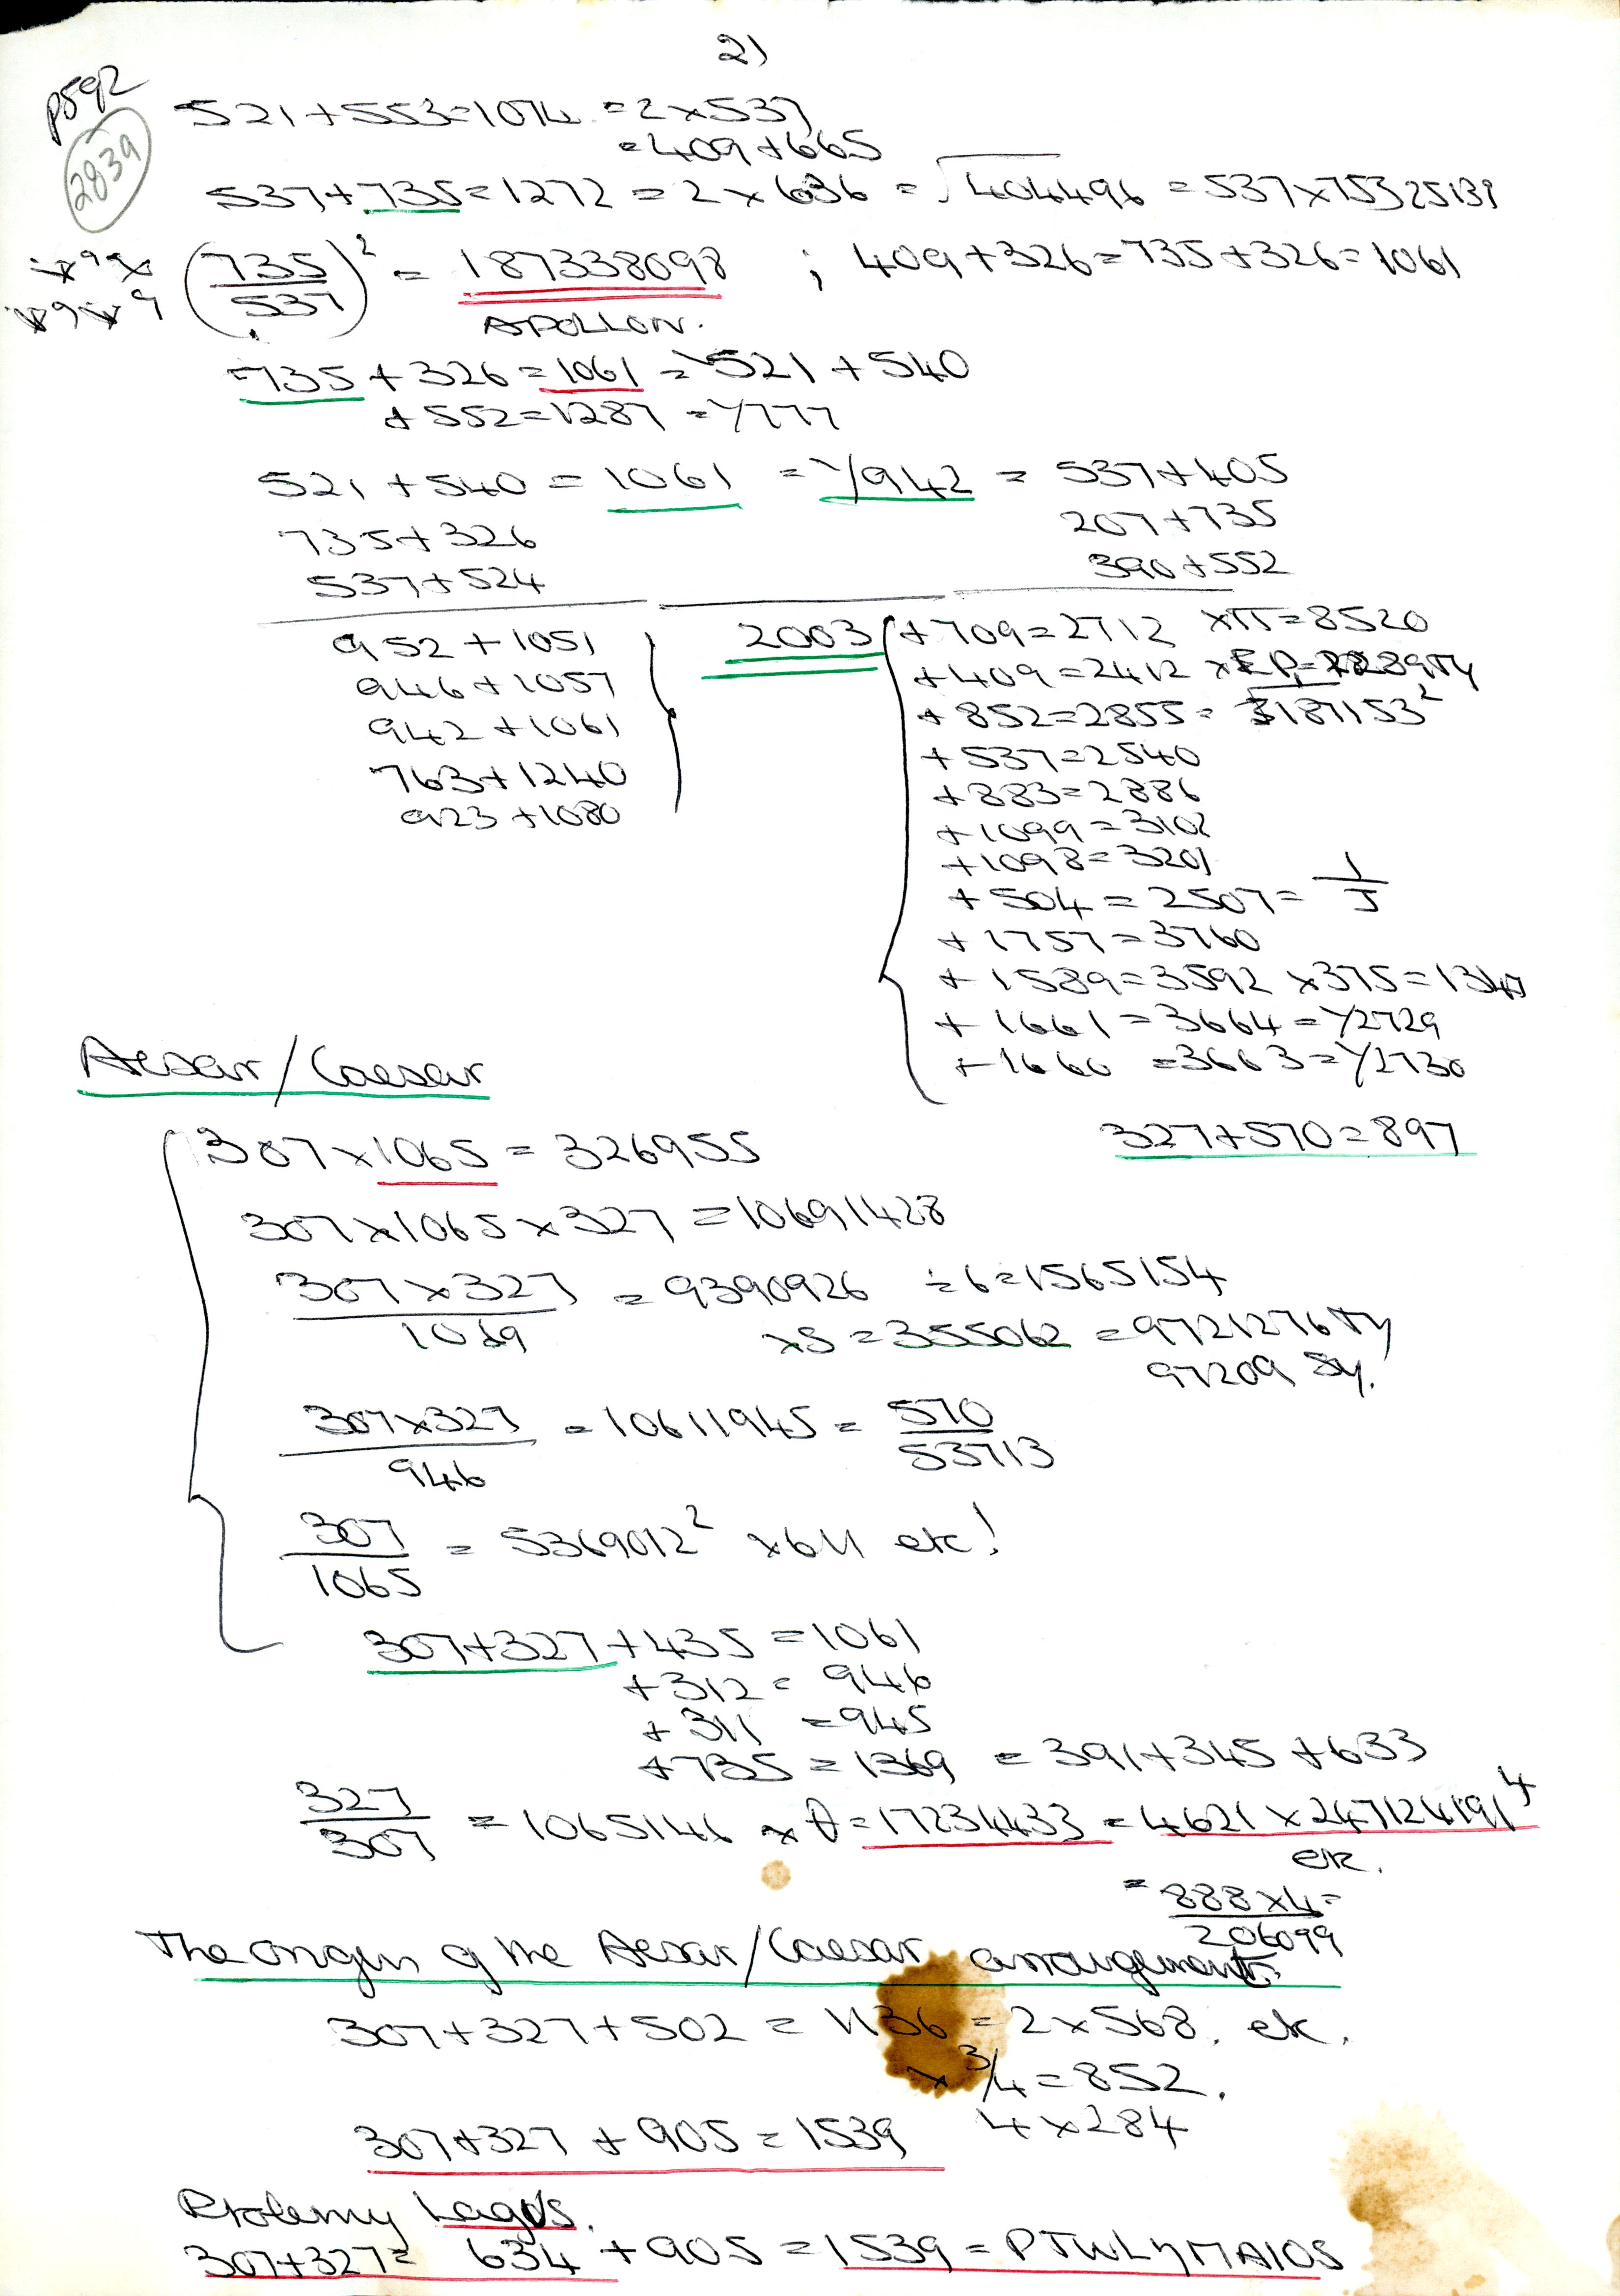 21
p592
2839
521+553=1074 = 2×537
=409+665
537+735=1272 = 2×636 = √404496 = 537×75325139
(735/537)² = 187338098 ; 409+326=735+326=1061
APOLLON.
735+326=1061 = 521+540
+552=1287 = 1/777
521+540 = 1061 = 1/942 = 537+405
735+326 207+735
537+524 390+552
952+1051
946+1057
942+1061
763+1240
923+1080
2003
+709=2712 ×π=8520
+409=2412
+852=2855= 5187153²
+537=2540
+883=2886
+1099=3102
+1098=3201
+504=2507= 1/5
+1757=3760
+1589=3592 ×375=1347
+1661=3664=1/2729
+1660=3663=1/2730
327+570=897
Aesar/Caesar
307×1065=326955
307×1065×327=10691428
307×327/1069 = 9390926 ÷6=1565154
×5=355062 =9721276 Ty
97209 Sy.
307×327/946 = 10611945 = 570/53713
307/1065 = 5369012² ×64 etc!
307+327+435=1061
+312= 946
+311 =945
+735=1369 =391+345+633
327/307 = 1065146 × θ=17234433=4621×247124191⁴
etc.
= 888×4=/206099
The origin of the Aesar/Caesar arrangement.
307+327+502 = 1136=2×568. etc.
×3/4=852.
4×284
307+327+905=1539
Ptolemy Lagos.
307+327= 634+905=1539=PTWLYMAIOS